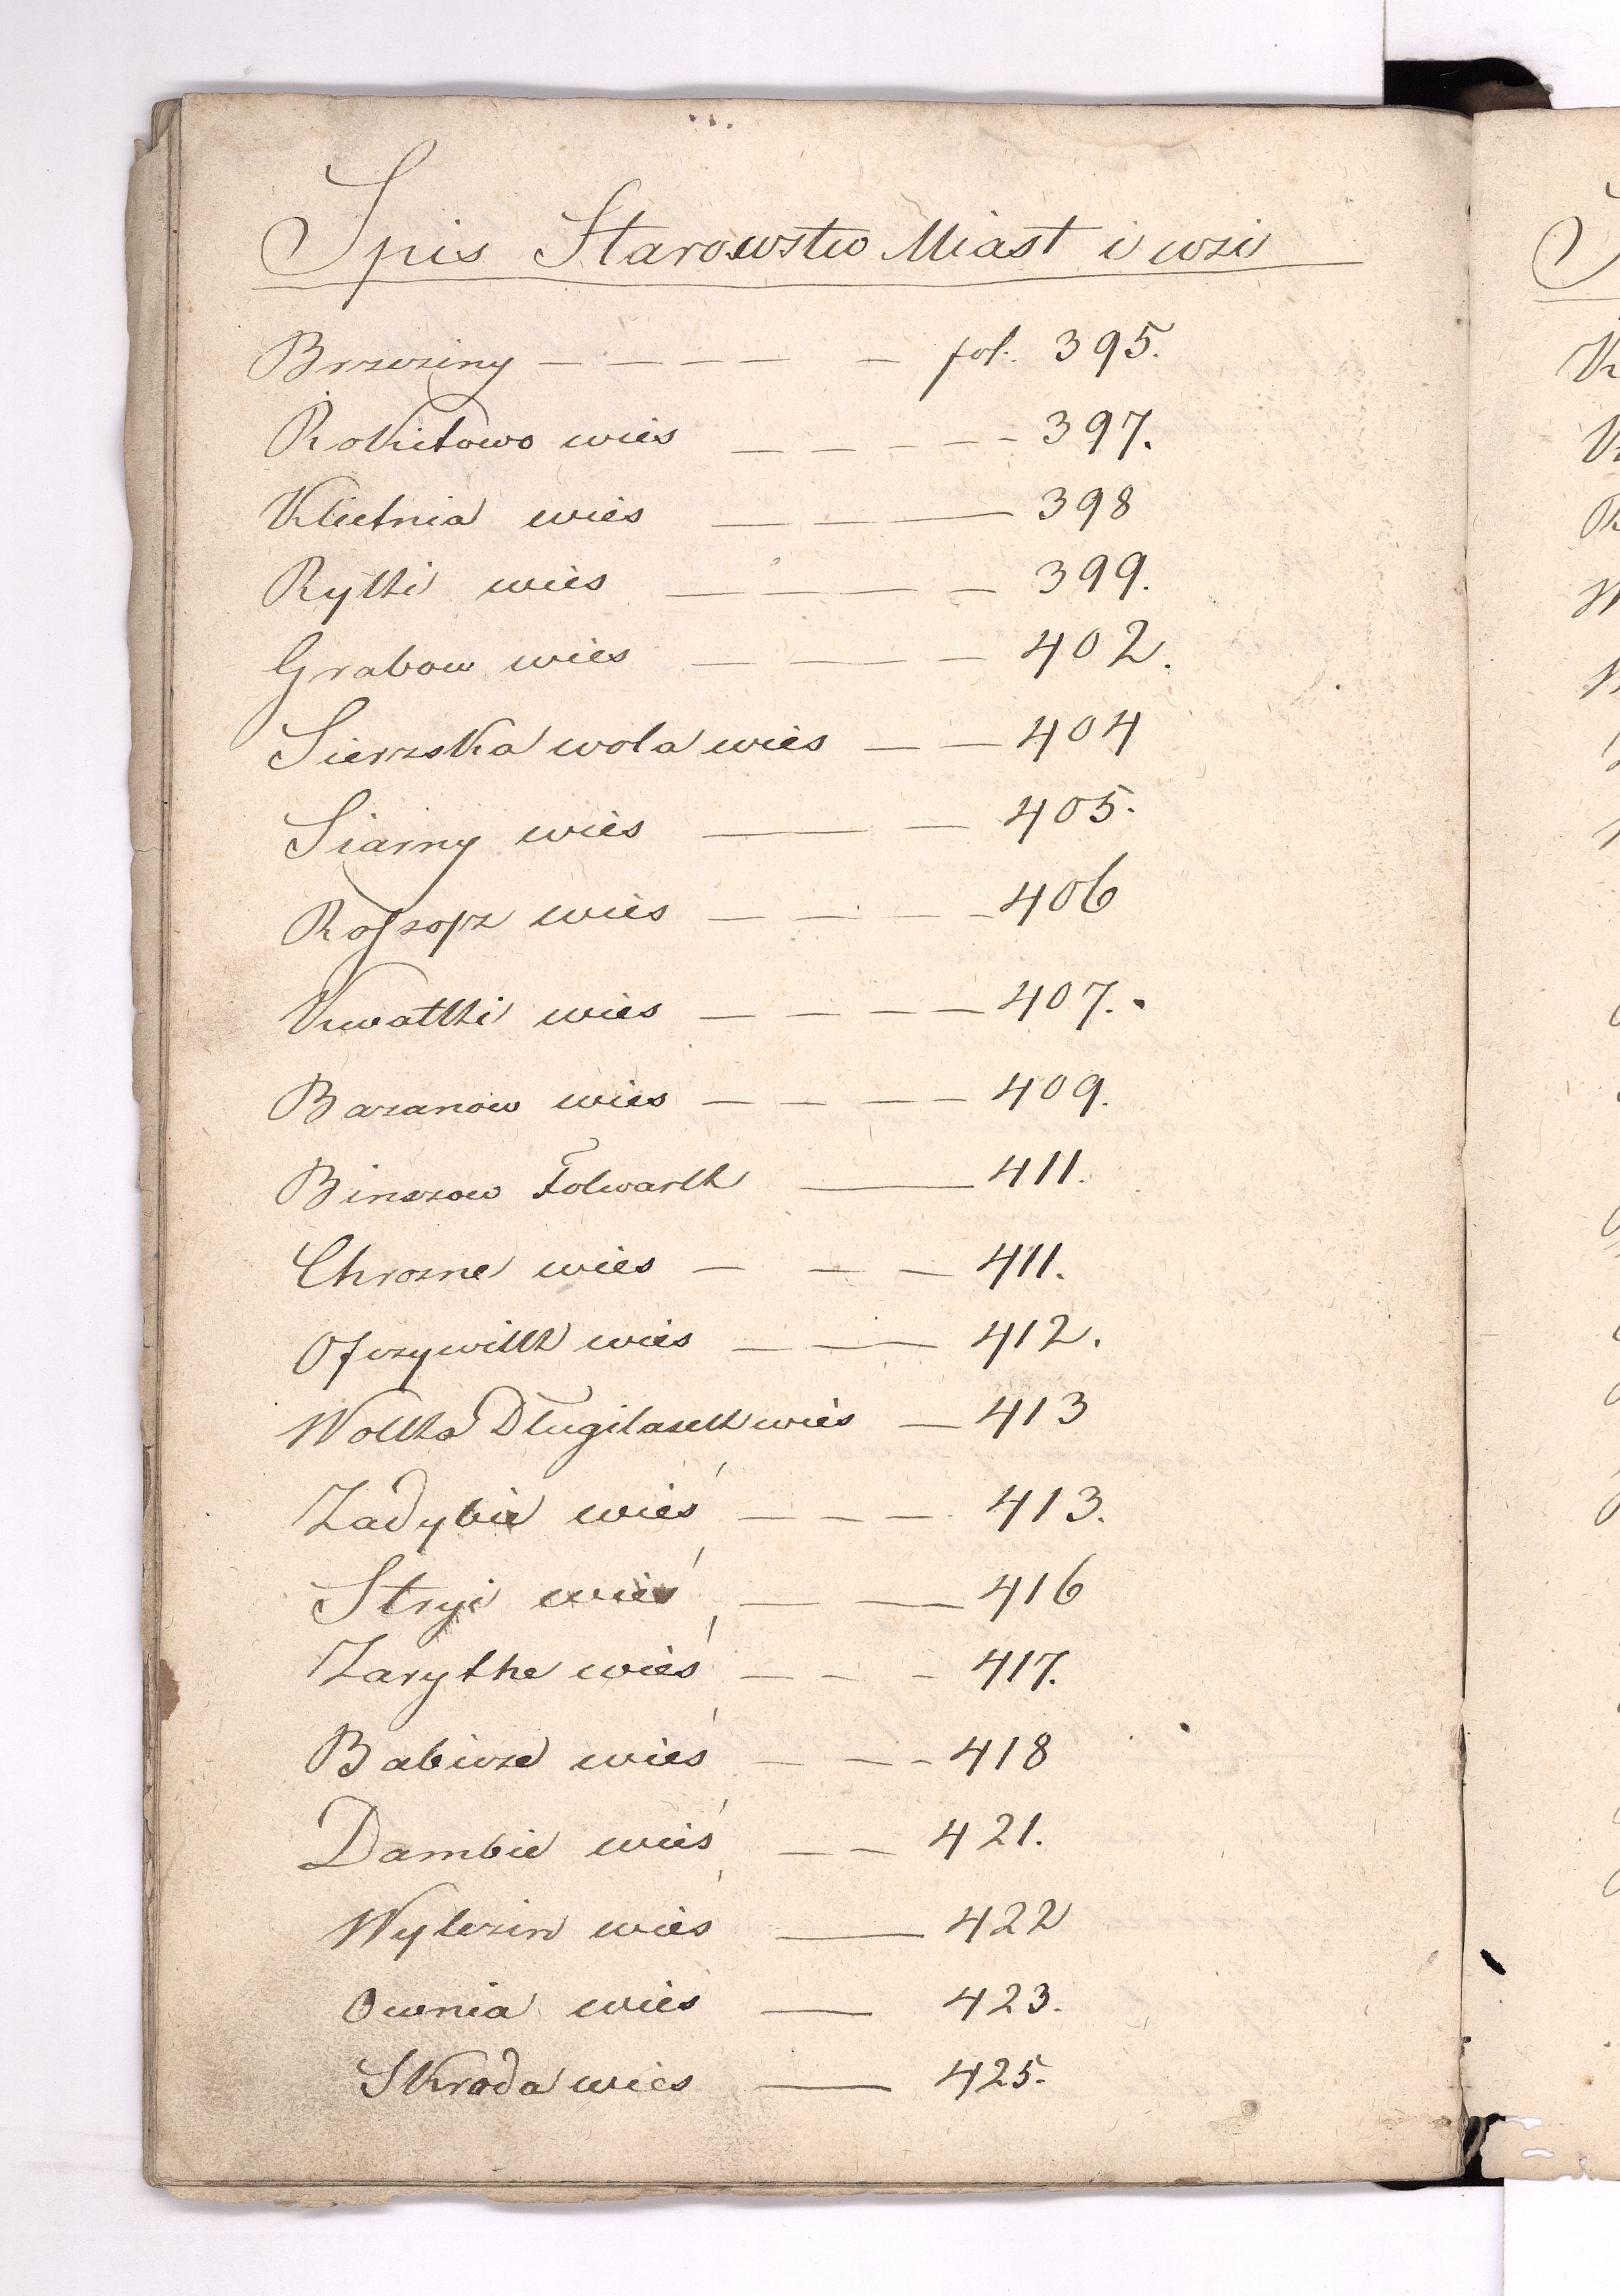 Spis Starowstw Miast i wsi
Brzeziny — — — — — fol. 395.
Rokitowo wies — — — — 397.
Klietnia wies — — — 398
Rytki wies — — — — 399.
Grabow wies — — — 402.
Sierzska wola wies — — 404
Siarny wies — — 405.
Rossosz wies — — — — 406
Kwatki wies — — — — 407.
Bazanow wies — — — — 409.
Folwark — 411.
Chrosne wies — — — 411.
wies — — 412.
Wolka Dlugilasek wies — 413
Zadybie wieś — — — 413.
Stryi wieś — — 416
Zarytke wieś — — — 417.
Babice wieś — — — 418
Dambie wieś — — 421.
Wylezin wieś — 422
Ownia wieś — 423.
Skroda wies — 425.